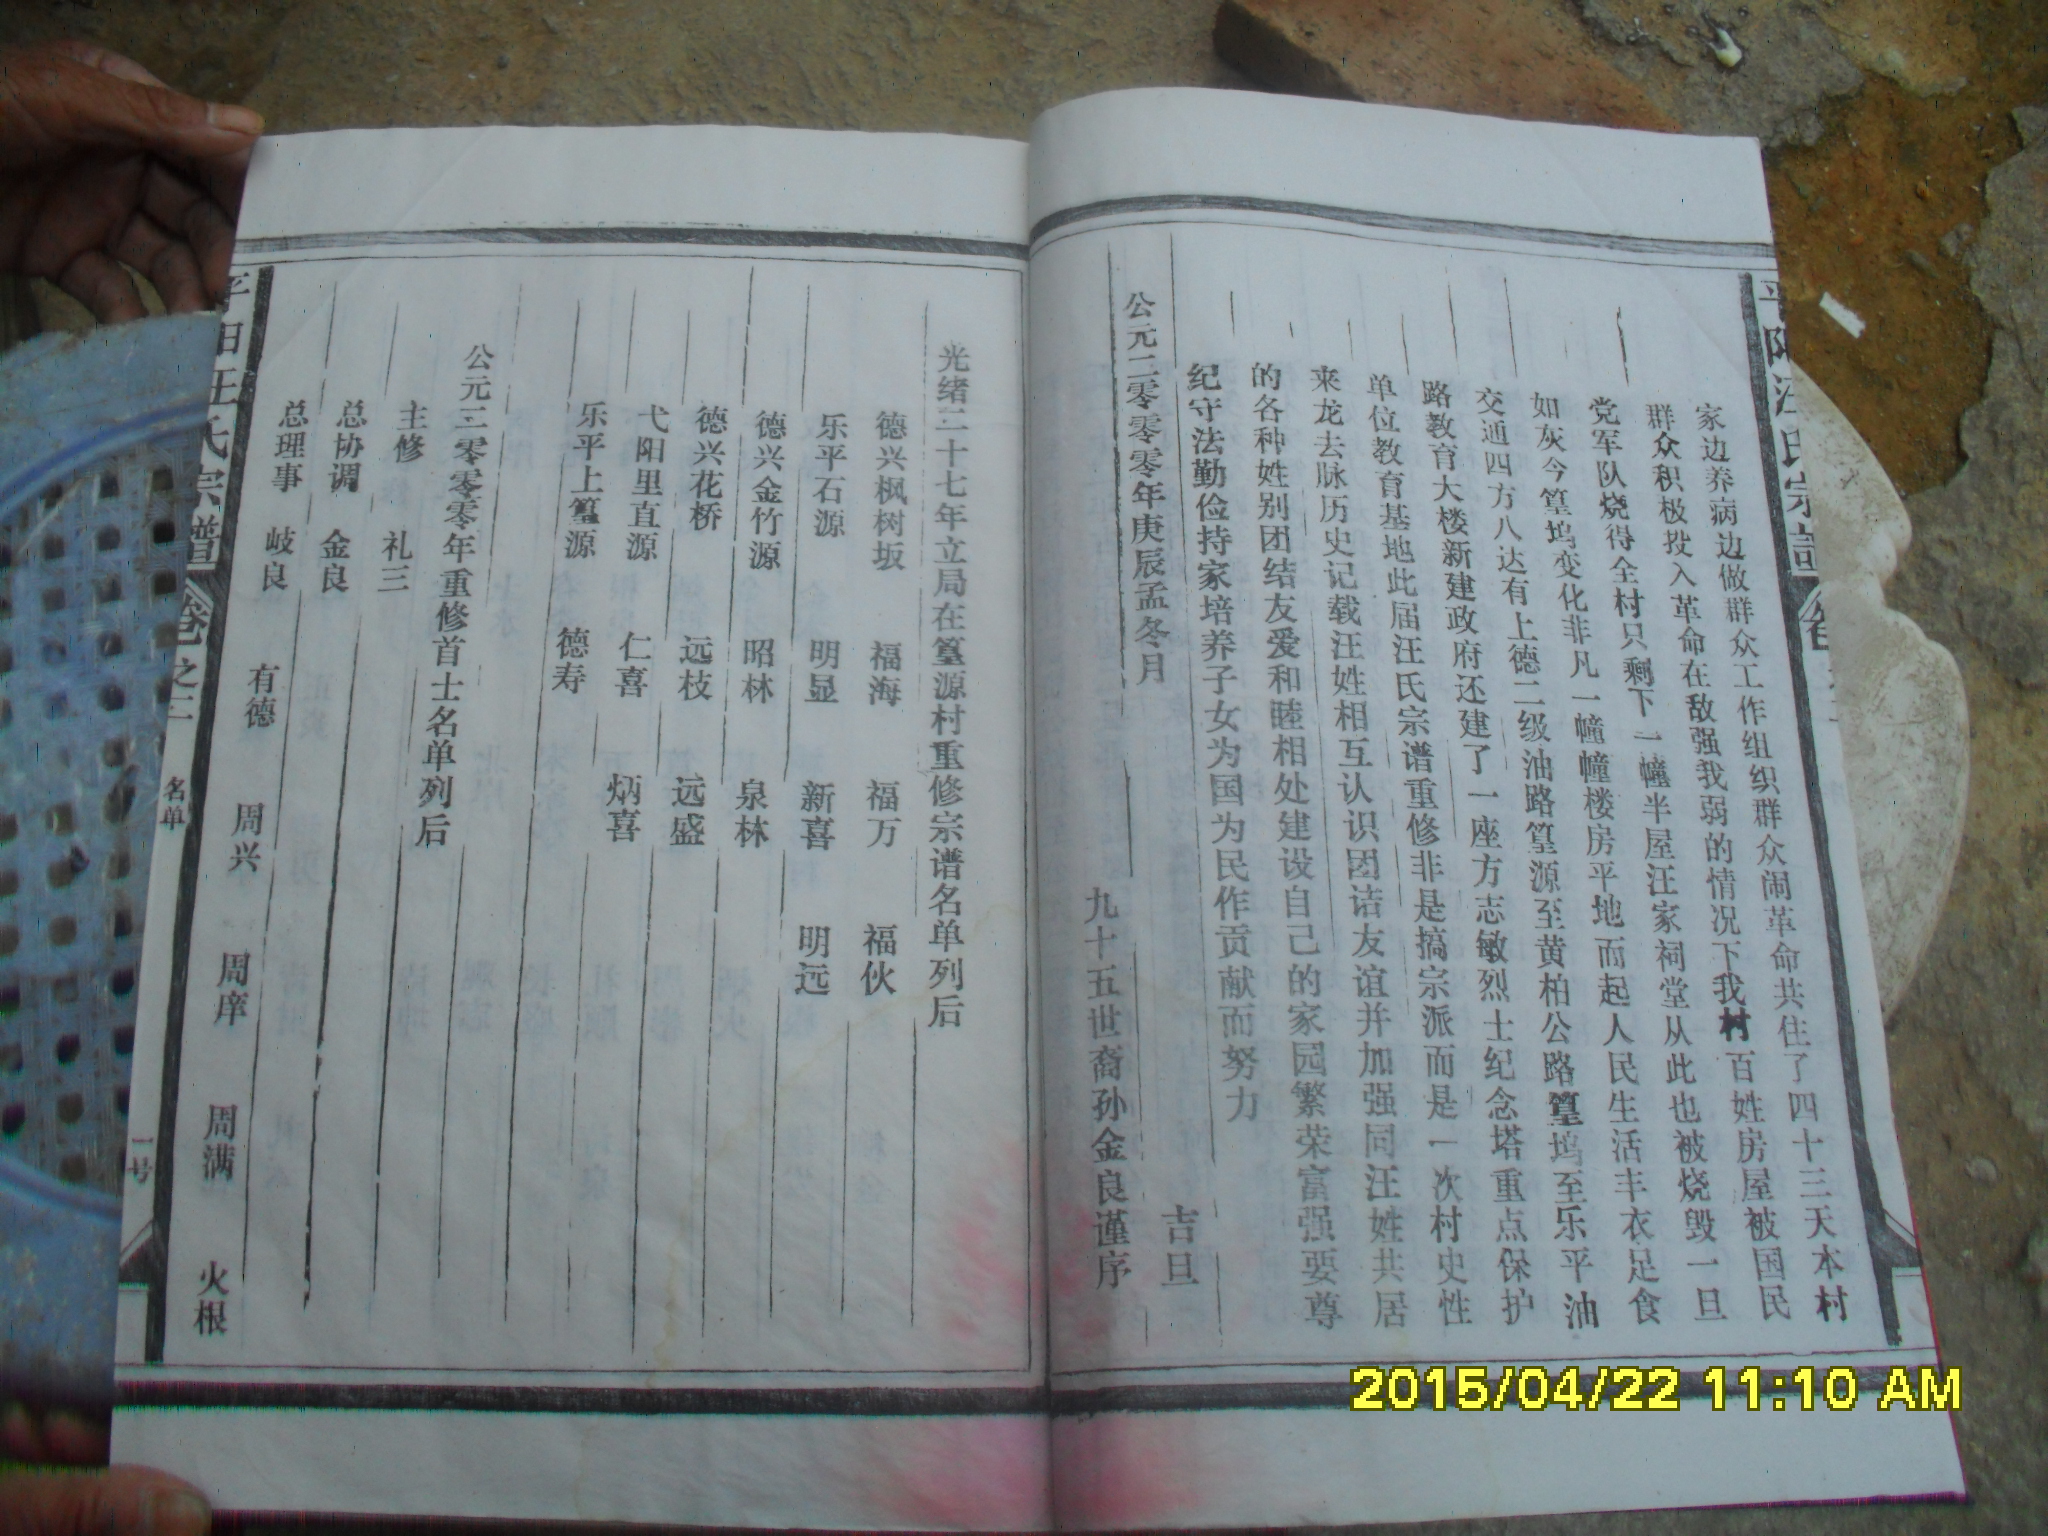 家边养病边做群众工作组织群众闹革命共住了四十三天本村
群众积极投入革命在敌强我弱的情况下我村百姓房屋被国民
党军队烧得全村只剩下一幢半屋汪家祠堂从此也被烧毁一旦
如灰今篁坞变化非凡一幢幢楼房平地而起人民生活丰衣足食
交通四方八达有上德二级油路篁源至黄柏公路篁坞至乐平油
路教育大楼新建政府还建了一座方志敏烈士纪念塔重点保护
单位教育基地此届汪氏宗谱重修非是搞宗派而是一次村史性
来龙去脉历史记载汪姓相互认识团诘友谊并加强同汪姓共居
的各种姓别团结友爱和睦相处建设自己的家园繁荣富强要尊
纪守法勤俭持家培养子女为国为民作贡献而努力
公元二零零零年庚辰孟冬月 吉旦
九十五世裔孙金良谨序
光绪二十七年立局在篁源村重修宗谱名单列后
德兴枫树坂 福海 福万 福伙
乐平石源 明显 新喜 明远
德兴金竹源 昭林 泉林
德兴花桥 远枝 远盛
弋阳里直源 仁喜 炳喜
乐平上篁源 德寿
公元二零零零年重修首士名单列后
主修 礼三
总协调 金良
总理事 岐良
有德 周兴 周庠 周满 火根
平阳汪氏宗谱 卷之二 名单 一号